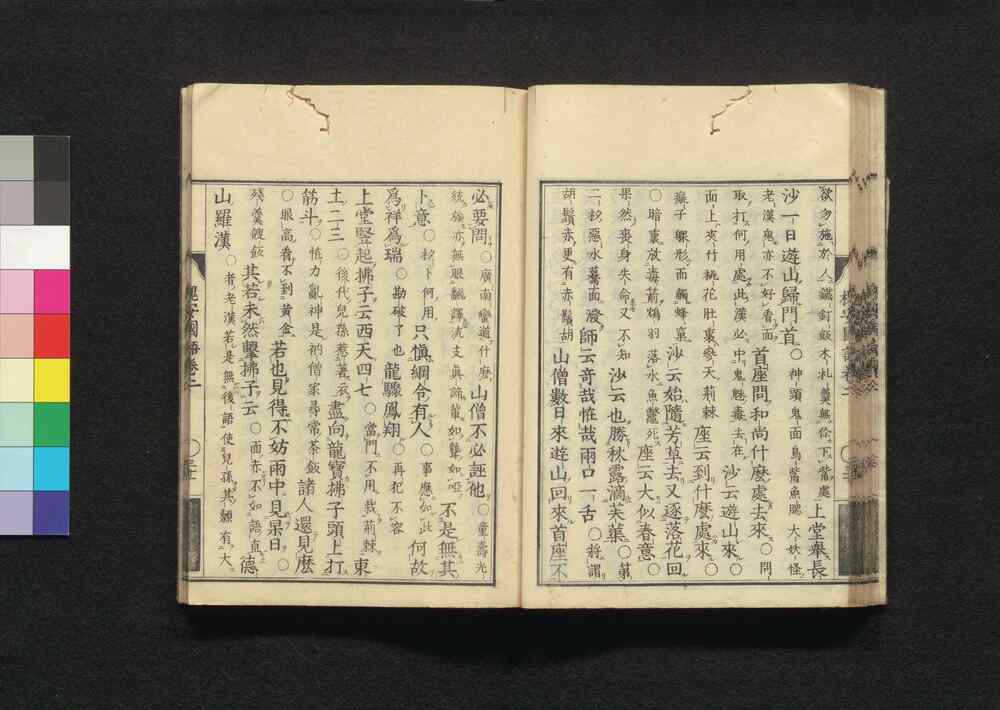 欲勿施於人鐵釘飯木札羹無你下觜處 上堂舉長
沙一日遊山歸門首〇神頭鬼面鳥觜魚腮大妖怪
老漢鬼亦不好看面 首座問和尚什麼處去來〇問
取打何用處此漢必中鬼魅毒去在 沙云遊山來〇
面上夾竹桃花肚裏參天荊棘 座云到什麼處來〇
子躶形而觸蜂窠 沙云始隨芳草去又逐落花回
〇暗裏放毒箭鴆羽落水魚鼈死 座云大似春意〇
果然喪身失命又不知 沙云也勝秋露滴芙蕖〇第
二杓惡水驀面潑 師云奇哉恠哉兩口一舌〇將謂
胡鬚赤更有赤鬚胡 山僧數日來遊山回來首座不
必要問〇廣南蠻道什麼 山僧不必誣他〇童壽光
統 亦無眼 譯流支眞諦輩如聾如啞 不是無其
卜意〇杓卜何用 只愼綱令有人〇事應如此 何故
爲祥爲瑞〇勘破了也 龍驤鳳翔〇再犯不容
上堂竪起拂子云西天四七〇當門不用栽荊棘 東
土二三〇後代兒孫惹著衣 盡向龍寶拂子頭上打
筋斗〇恠力亂神是衲僧家尋常茶飯 諸人還見麼
〇眼高看不到黄金 若也見得不妨雨中見杲日〇
殘羹餿飯 其若未然擊拂子云〇面赤不如語直 德
山羅漢〇者老漢若是無後語使兒孫其顙有大